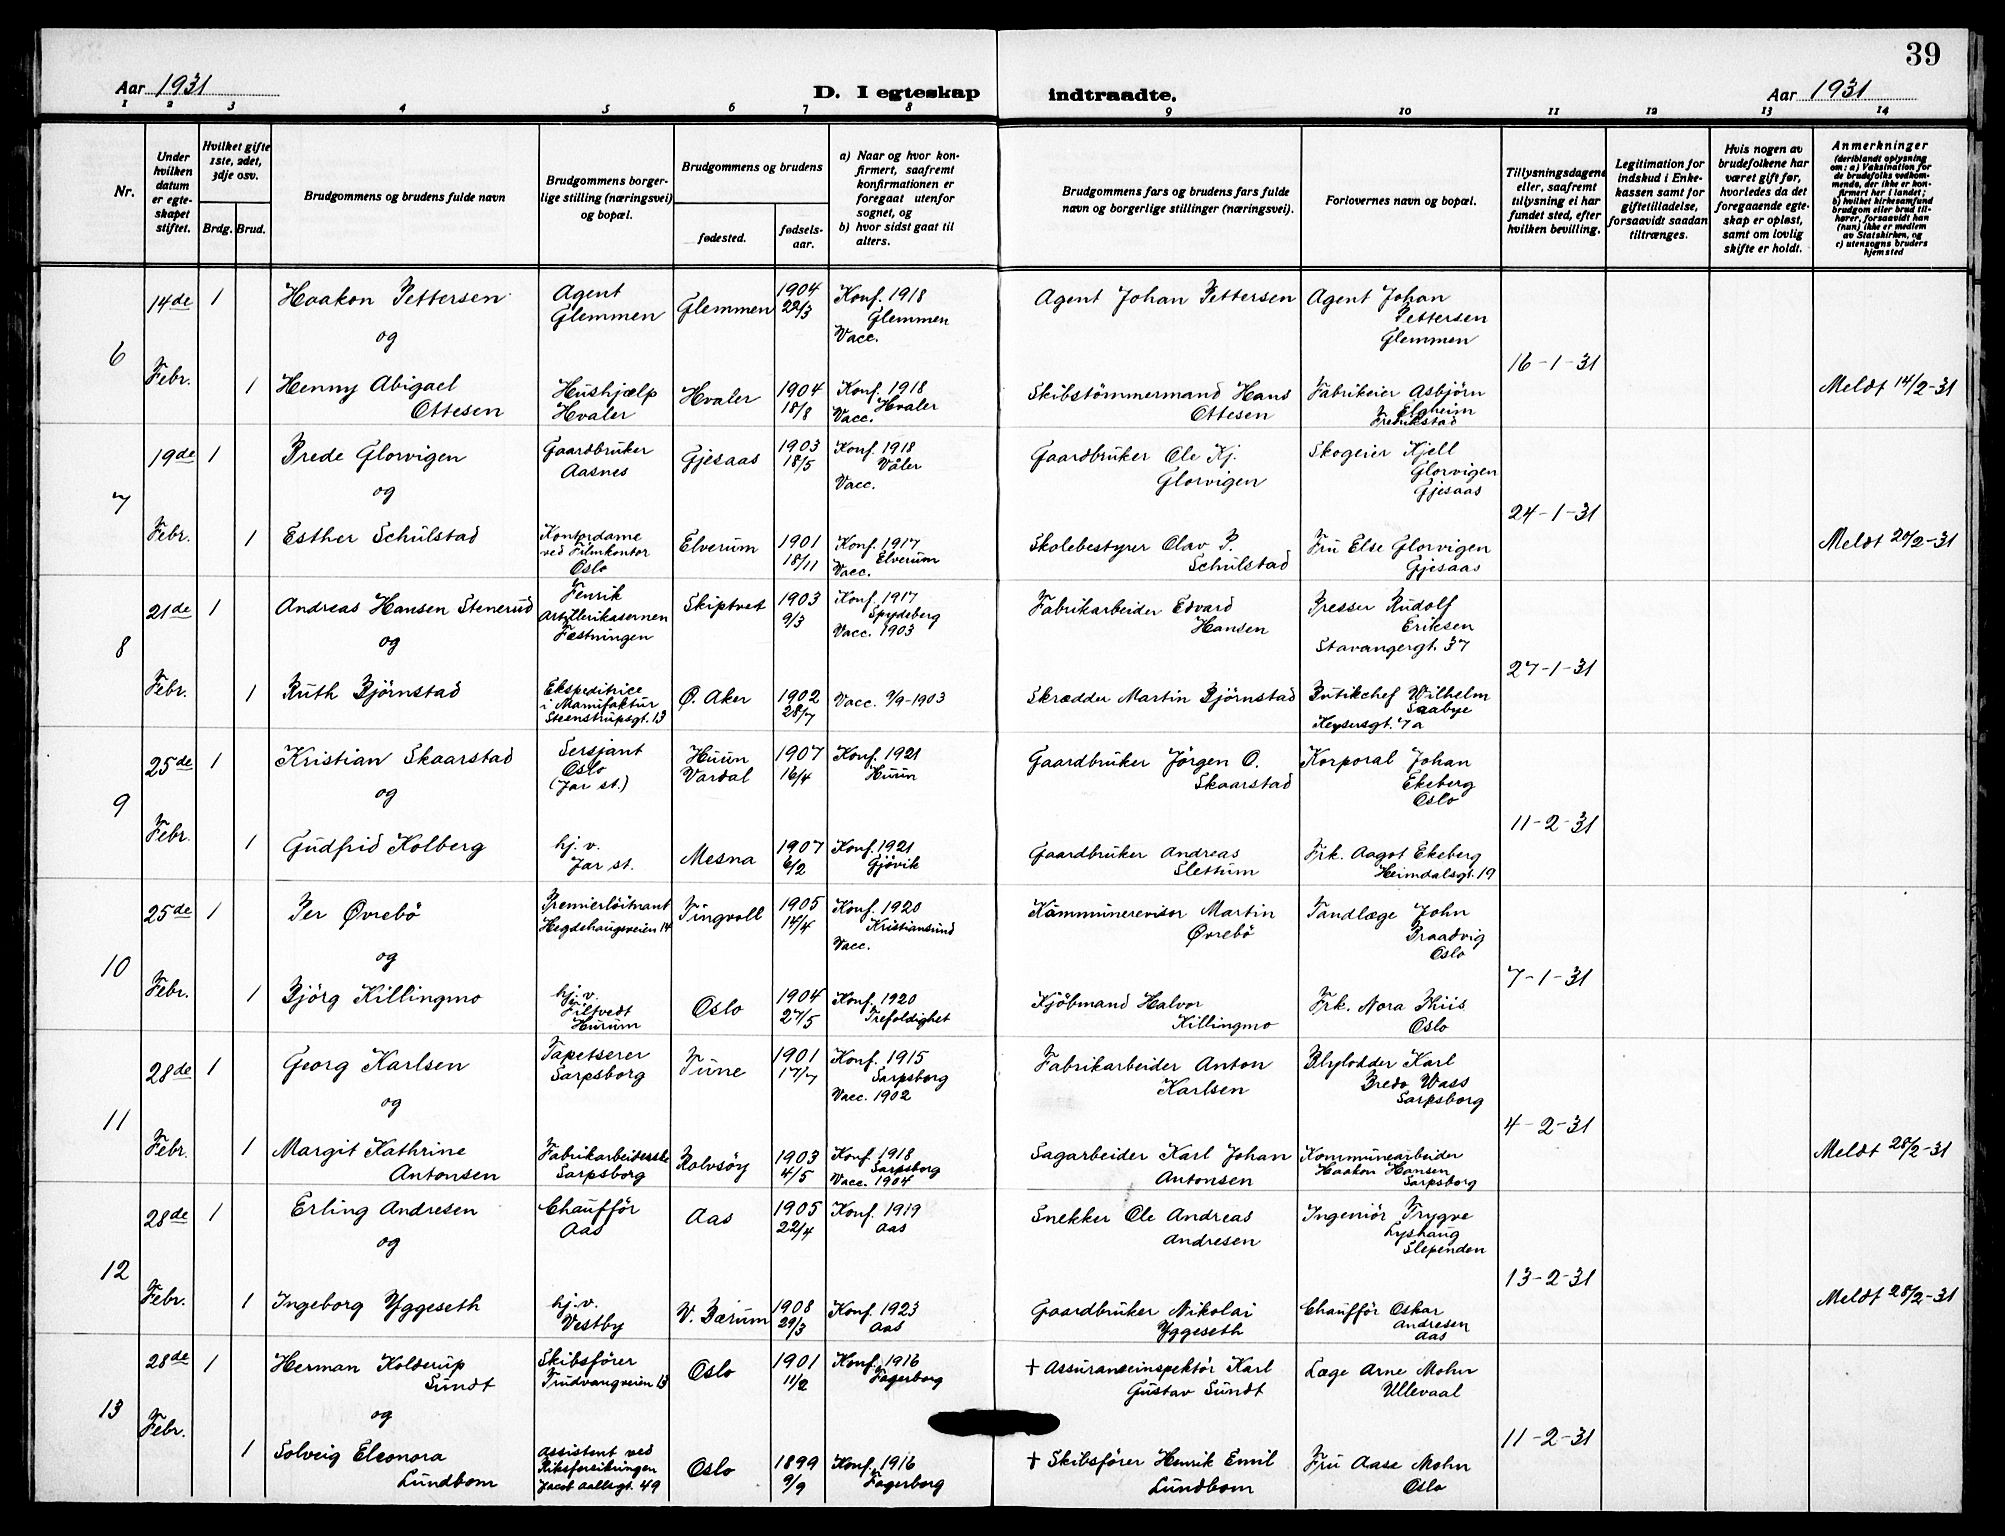 39
Aar 1931 D. I egteskap indtraadte. Aar 1931
1 2 3 4 5 6 7 8 9 10 11 12 13 14
Nr.
Under hvilken datum er egteskapet stiftet.
Hvilket gifte 1ste, 2det, 3dje osv.
Brdg. Brud.
Brudgommens og brudens fulde navn
Brudgommens borgerlige stilling (næringsvei) og bopæl.
Brudgommens og brudens
fødested.
fødselsaar.
a) Naar og hvor konfirmert, saafremt konfirmationen er foregaat utenfor sognet, og
b) hvor sidst gaat til alters.
Brudgommens fars og brudens fars fulde navn og borgerlige stillinger (næringsvei).
Forlovernes navn og bopæl.
Tillysningsdagene eller, saafremt tillysning ei har fundet sted, efter hvilken bevilling.
Legitimation for indskud i Enkekassen samt for giftetilladelse, forsaavidt saadan tiltrænges.
Hvis nogen av brudefolkene har været gift før, hvorledes da det foregaaende egteskap er opløst, samt om lovlig skifte er holdt.
Anmerkninger
(deriblandt oplysning om: a) Vaksination for de brudefolks vedkommende, der ikke er konfirmert her i landet; b) hvilket kirkesamfund brudgom eller brud tilhører, forsaavidt han (hun) ikke er medlem av Statskirken, og c) utensogns bruders hjemsted
6 14de Febr.
1 Haakon Pettersen Agent Glemmen Glemmen 1904 22/3 Konf. 1918 Glemmen Vacc. Agent Johan Pettersen Agent Johan Pettersen Glemmen
og
16-1-31
1 Henny Abigael Ottesen Hushjælp Hvaler Hvaler 1904 18/8 Konf. 1918 Hvaler Vacc. Skibstömmermand Hans Ottesen Fabrikeier Asbjörn Elgheim Fredrikstad Meldt 14/2-31
7 19de Febr.
1 Prede Glorvigen Gaardbruker Aasnes Gjesaas 1903 18/5 Konf. 1918 Våler Vacc. Gaardbruker Ole Kj. Glorvigen Skogeier Kjell Glorvigen Gjesaas
og
24-1-31
1 Esther Schulstad Kontordame ved Filmkontor Oslo Elverum 1901 18/11 Konf. 1917 Elverum Vacc. Skolebestyrer Olav P. Schulstad Fru Else Glorvigen Gjesaas Meldt 20/2-31
8 21de Febr.
1 Andreas Hansen Stenerud Fenrik Artillerikasernen Fæstningen Skiptvet 1903 9/3 Konf. 1917 Spydeberg Vacc. 1903 Fabrikarbeider Edvard Hansen Presser Rudolf Eriksen Stavangergt. 37
og
27-1-31
1 Ruth Björnstad Ekspeditrice i Manufaktur Steenstrupsgt. 13 Ø. Aker 1902 28/7 Vacc. 9/9-1903 Skrædder Martin Björnstad Butikchef Wilhelm Saabye Keysersgt. 7a
9 25de Febr.
1 Kristian Skaarstad Sersjant Oslo (Jar st.) Hunn Vardal 1907 16/4 Konf. 1921 Hunn Gaardbruker Jörgen O. Skaarstad Korporal Johan Ekeberg Oslo
og
11-2-31
1 Gudfrid Kolberg hj. v. Jar st. Mesna 1907 6/2 Konf. 1921 Gjövik Gaardbruker Andreas Slettum Frk. Aagot Ekeberg Heimdalsgt. 19
10 25de Febr.
1 Per Øvrebö Premierlöitnant Hegdehaugsveien 14 Tingvoll 1905 14/4 Konf. 1920 Kristiansund Vacc. Kommunerevisor Martin Øvrebö Tandlæge John Braadvig Oslo
og
7-1-31
1 Björg Killingmo hj. v. Filtvedt Hurum Oslo 1904 27/5 Konf. 1920 Trefoldighet Kjöbmand Halvor Killingmo Frk. Nora Thiis Oslo
11 28de Febr.
1 Georg Karlsen Tapetserer Sarpsborg Tune 1901 17/7 Konf. 1915 Sarpsborg Vacc. 1902 Fabrikarbeider Anton Karlsen Blylodder Karl Bredo Wass Sarpsborg
og
4-2-31
1 Margit Kathrine Antonsen Fabrikarbeiderske Sarpsborg Rolvsöy 1903 4/5 Konf. 1918 Sarpsborg Vacc. 1904 Sagarbeider Karl Johan Antonsen Kommunearbeider Haakon Hansen Sarpsborg Meldt 28/2-31
12 28de Febr.
1 Erling Andresen Chaufför Aas Aas 1905 22/4 Konf. 1919 Aas Snekker Ole Andreas Andresen Ingeniör Trygve Lyshaug Slependen
og
13-2-31
1 Ingeborg Yggeseth hj. v. Vestby V. Bærum 1908 29/3 Konf. 1923 Aas Gaardbruker Nikolai Yggeseth Chaufför Oskar Andresen Aas Meldt 28/2-31
13 28de Febr.
1 Herman Kolderup Sundt Skibsförer Trudvangveien 13 Oslo 1901 11/2 Konf. 1916 Fagerborg † Assuranseinspektör Karl Gustav Sundt Læge Arne Mohn Ullevaal
og
11-2-31
1 Solveig Eleonora Lundbom Assistent ved Riksforsikringen Jacob Aallsgt. 49 Oslo 1899 9/9 Konf. 1916 Fagerborg † Skibsförer Henrik Emil Lundbom Fru Aase Mohn Oslo